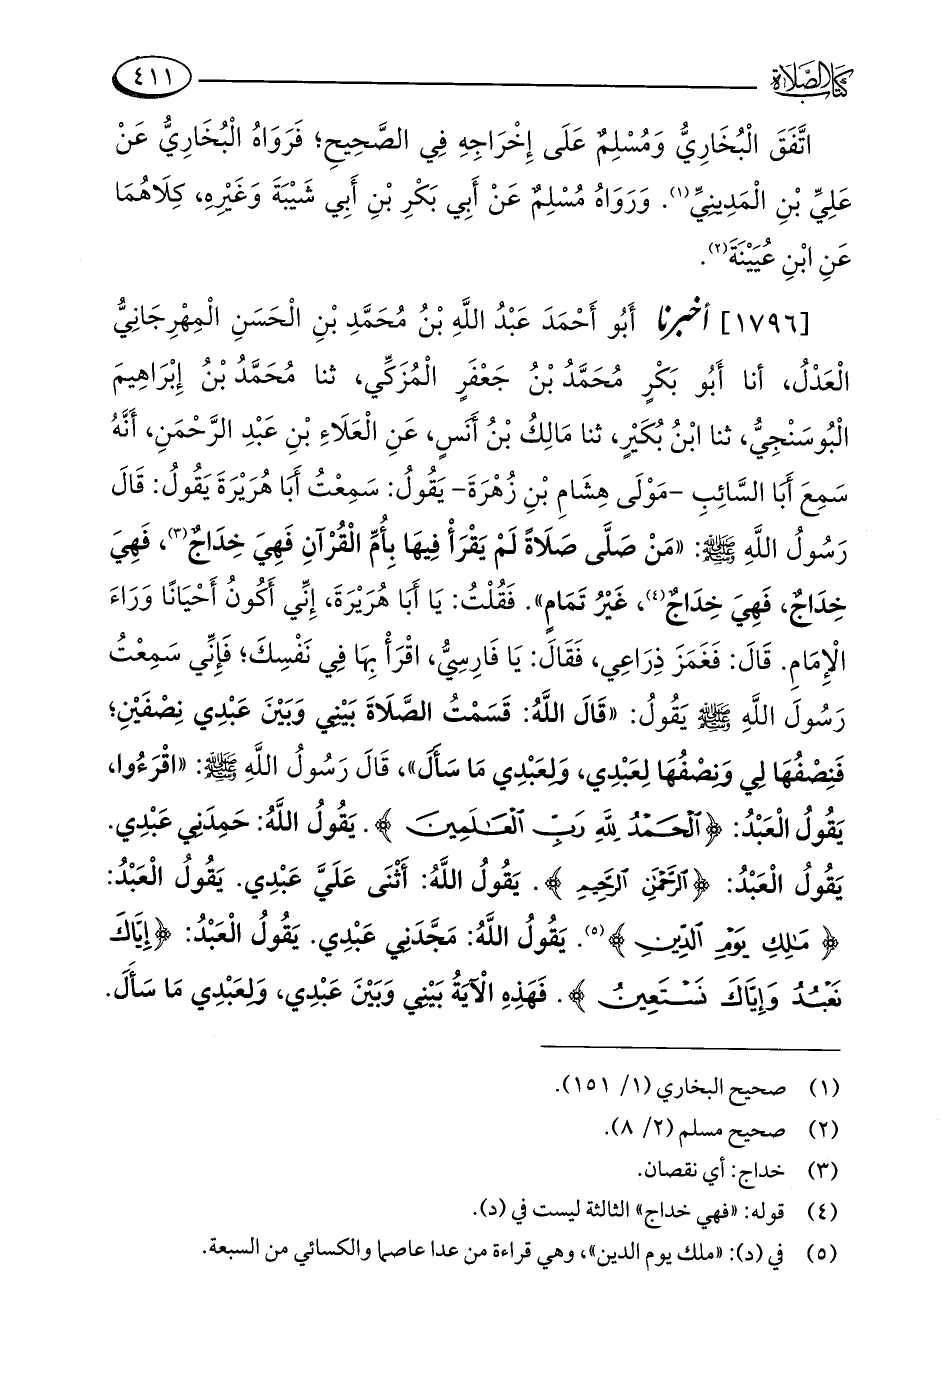 كتاب الصلاة ٤١١
اتَّفَقَ الْبُخَارِيُّ وَمُسْلِمٌ عَلَى إِخْرَاجِهِ فِي الصَّحِيحِ؛ فَرَوَاهُ الْبُخَارِيُّ عَنْ
عَلِيِّ بْنِ الْمَدِينِيِّ(١). وَرَوَاهُ مُسْلِمٌ عَنْ أَبِي بَكْرِ بْنِ أَبِي شَيْبَةَ وَغَيْرِهِ، كِلَاهُمَا
عَنِ ابْنِ عُيَيْنَةَ(٢).
[١٧٩٦] أخبرنا أَبُو أَحْمَدَ عَبْدُ اللَّهِ بْنُ مُحَمَّدِ بْنِ الْحَسَنِ الْمِهْرِجَانِيُّ
الْعَدْلُ، أنا أَبُو بَكْرٍ مُحَمَّدُ بْنُ جَعْفَرٍ الْمُزَكِّي، ثنا مُحَمَّدُ بْنُ إِبْرَاهِيمَ
الْبُوسَنْجِيُّ، ثنا ابْنُ بُكَيْرٍ، ثنا مَالِكُ بْنُ أَنَسٍ، عَنِ الْعَلَاءِ بْنِ عَبْدِ الرَّحْمَنِ، أَنَّهُ
سَمِعَ أَبَا السَّائِبِ -مَوْلَى هِشَامِ بْنِ زُهْرَةَ- يَقُولُ: سَمِعْتُ أَبَا هُرَيْرَةَ يَقُولُ: قَالَ
رَسُولُ اللَّهِ ﷺ: «مَنْ صَلَّى صَلَاةً لَمْ يَقْرَأْ فِيهَا بِأُمِّ الْقُرْآنِ فَهِيَ خِدَاجٌ(٣)، فَهِيَ
خِدَاجٌ، فَهِيَ خِدَاجٌ(٤)، غَيْرُ تَمَامٍ». فَقُلْتُ: يَا أَبَا هُرَيْرَةَ، إِنِّي أَكُونُ أَحْيَانًا وَرَاءَ
الْإِمَامِ. قَالَ: فَغَمَزَ ذِرَاعِي، فَقَالَ: يَا فَارِسِيُّ، اقْرَأْ بِهَا فِي نَفْسِكَ؛ فَإِنِّي سَمِعْتُ
رَسُولَ اللَّهِ ﷺ يَقُولُ: «قَالَ اللَّهُ: قَسَمْتُ الصَّلَاةَ بَيْنِي وَبَيْنَ عَبْدِي نِصْفَيْنِ؛
فَنِصْفُهَا لِي وَنِصْفُهَا لِعَبْدِي، وَلِعَبْدِي مَا سَأَلَ»، قَالَ رَسُولُ اللَّهِ ﷺ: «اقْرَءُوا،
يَقُولُ الْعَبْدُ: ﴿ٱلْحَمْدُ لِلَّهِ رَبِّ ٱلْعَـٰلَمِينَ﴾. يَقُولُ اللَّهُ: حَمِدَنِي عَبْدِي.
يَقُولُ الْعَبْدُ: ﴿ٱلرَّحْمَٰنِ ٱلرَّحِيمِ﴾. يَقُولُ اللَّهُ: أَثْنَى عَلَيَّ عَبْدِي. يَقُولُ الْعَبْدُ:
﴿مَـٰلِكِ يَوْمِ ٱلدِّينِ﴾(٥). يَقُولُ اللَّهُ: مَجَّدَنِي عَبْدِي. يَقُولُ الْعَبْدُ: ﴿إِيَّاكَ
نَعْبُدُ وَإِيَّاكَ نَسْتَعِينُ﴾. فَهَذِهِ الْآيَةُ بَيْنِي وَبَيْنَ عَبْدِي، وَلِعَبْدِي مَا سَأَلَ.
(١) صحيح البخاري (١/ ١٥١).
(٢) صحيح مسلم (٢/ ٨).
(٣) خداج: أي نقصان.
(٤) قوله: «فهي خداج» الثالثة ليست في (د).
(٥) في (د): «ملك يوم الدين»، وهي قراءة من عدا عاصما والكسائي من السبعة.